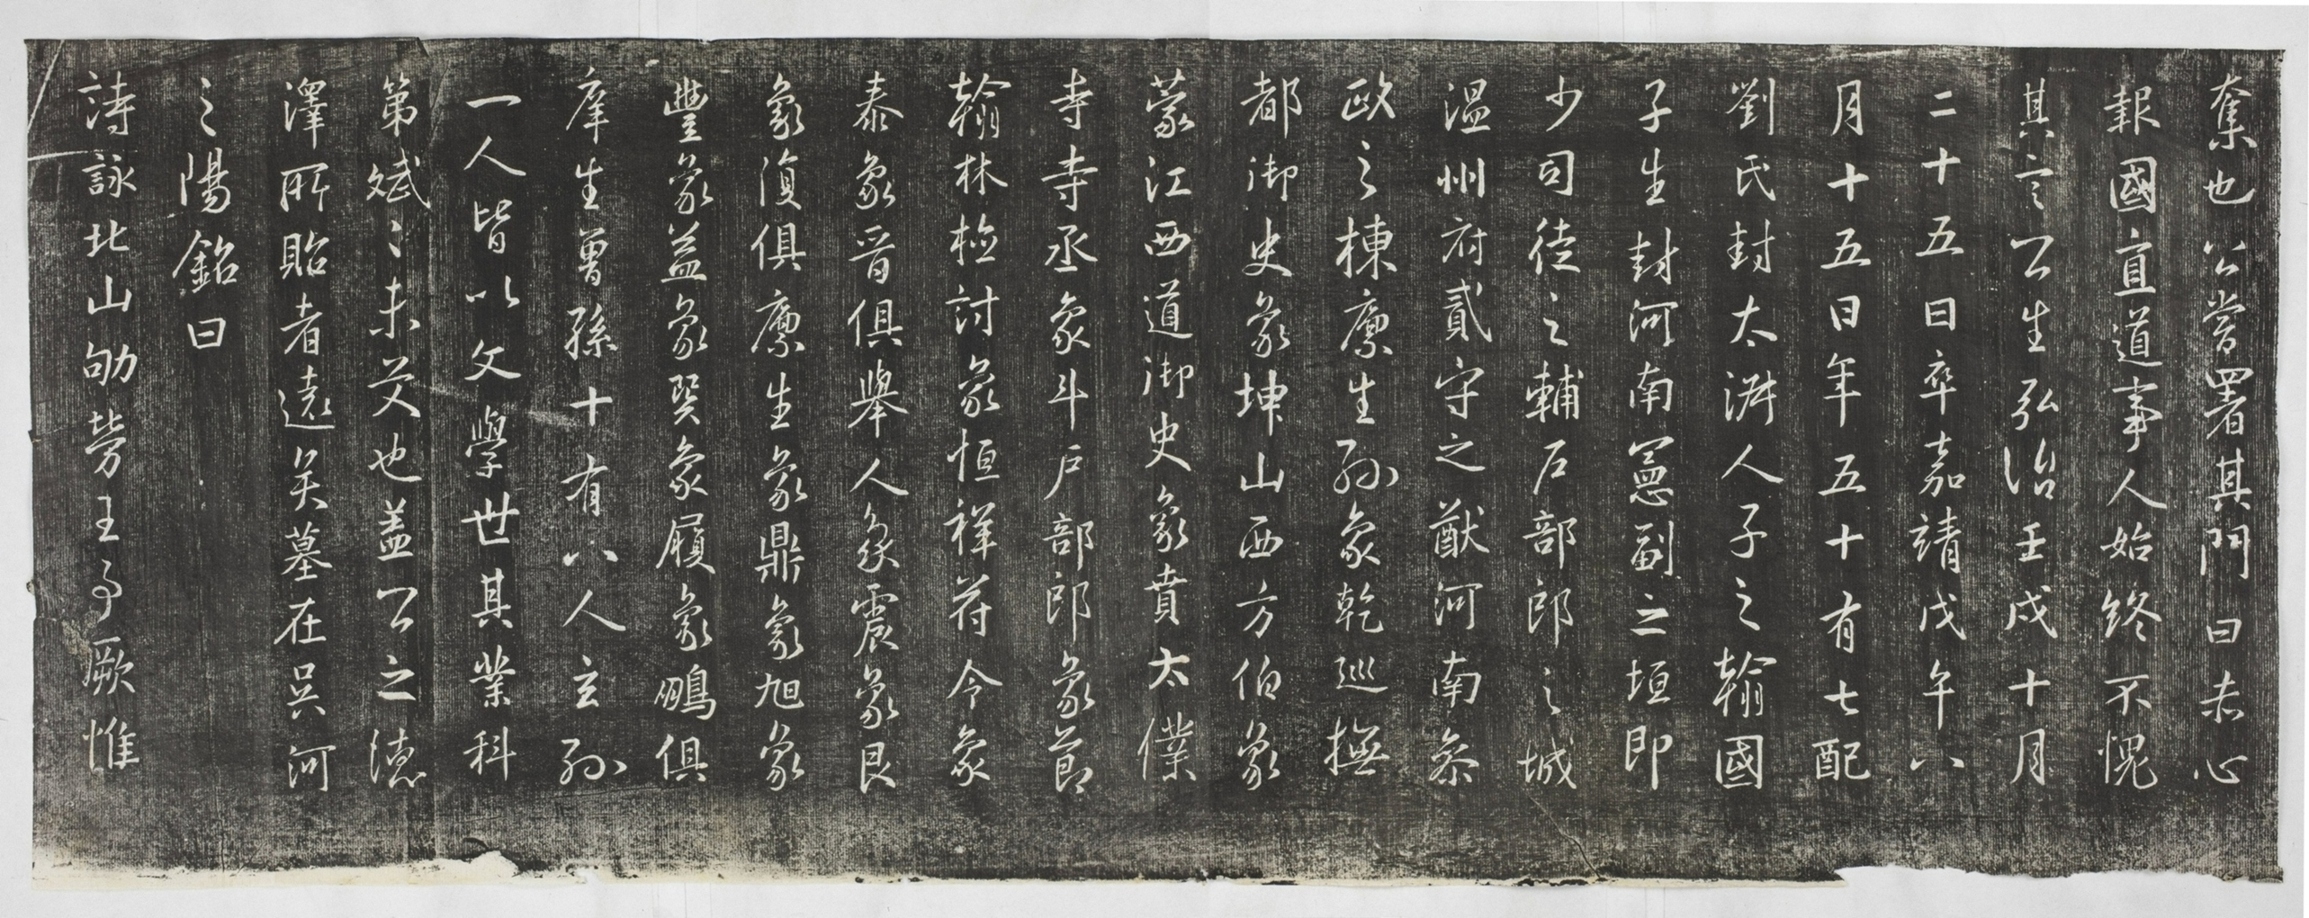 奪也公嘗署其門曰赤心
報國直道事人始終不愧
其言公生弘治壬戌十月
二十五日卒嘉靖戊午八
月十五日年五十有七配
劉氏封太淑人子之翰國
子生封河南憲副之垣即
少司徒之輔戶部郎之城
溫州府貳守之猷河南叅
政之棟廩生孫象乾巡撫
都御史象坤山西方伯象
蒙江西道御史象賁太僕
寺寺丞象斗戶部郎象節
翰林檢討象恒祥符令象
泰象晉俱舉人象震象艮
象復俱廩生象鼎象旭象
豐象益象巽象履象鵬俱
庠生曾孫十有八人玄孫
一人皆以文學世其業科
第斌斌未艾也盖公之德
澤所貽者遠矣墓在吳河
之陽銘曰
詩詠北山劬勞王事厥惟